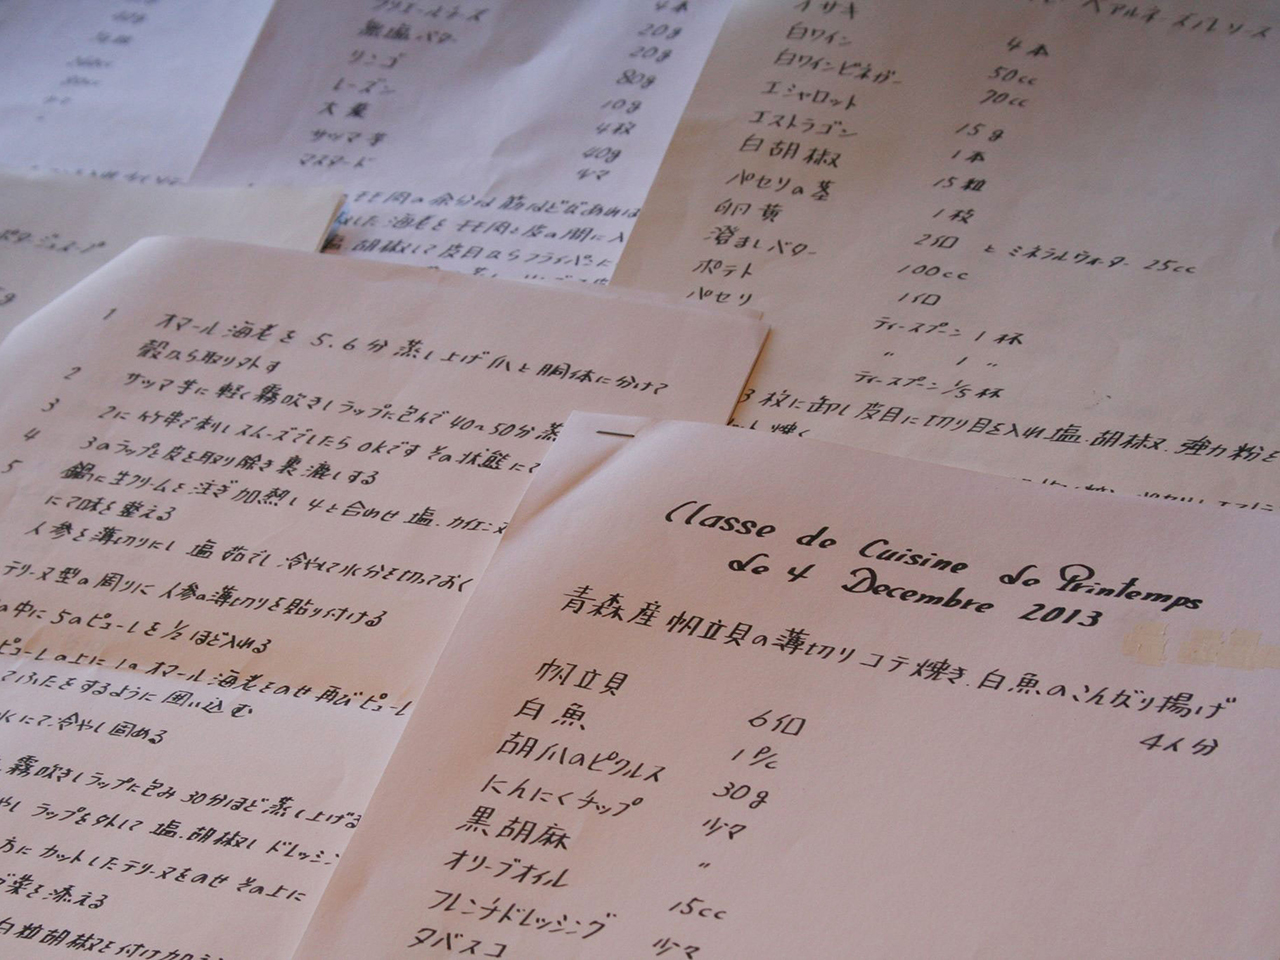 Classe de Cuisine de Printemps
de 4 Decembre 2013
青森産帆立貝の薄切りコテ焼き、白魚のこんがり揚げ
4人分
帆立貝 6個
白魚 1P/c
胡瓜のピクルス 30g
にんにくチップ 少々
黒胡麻 〃
オリーブオイル 15cc
フレンチドレッシング 少々
タバスコ
1 オマール海老を 5.6分 蒸し上げ爪と胴体に分けて
殻から取り外す
2 サツマ芋に軽く霧吹きしラップに包んで40〜50分蒸
3 2に竹串で刺しスムーズでしたらokです その状態にて
4 3のラップと皮を取り除き裏漉しする
5 鍋に生クリームを注ぎ加熱し4と合わせ 塩.カイエンヌ
にて味を整える
人参を薄切りにし 塩茹でし、冷やして水分を切っておく
テリーヌ型の周りに人参の薄切りを貼り付ける
の中に5のピューレを1/2ほど入れる
ピューレの上に1のオマール海老をのせ再びピューレ
てふたをするように囲い込む
水にて冷やし固める
霧吹きしラップに包み30分ほど蒸し上げる
やし ラップを外して 塩.胡椒し ドレッシン
方にカットしたテリーヌをのせ その上に
葉を添える
白粒胡椒を付け加
クリームチーズ 4本
無塩バター 20g
リンゴ 20g
レーズン 80g
大葉 10g
サツマ芋 4枚
マスタード 40g
少々
モモ肉の余分な筋
した海老をモモ肉と皮の間に入
塩 胡椒して皮目からフライパンに
イサキ
白ワイン 4本
白ワインビネガー 50cc
エシャロット 70cc
エストラゴン 15g
白胡椒 1本
パセリの茎 15粒
卵黄 1枝
澄ましバター 2個 とミネラルウォーター 25cc
ポテト 100cc
パセリ 1個
ティースプーン 1杯
〃 1 〃
ティースプーン 1/5杯
3枚に卸し皮目に切り目を入れ塩.胡椒.強力粉を